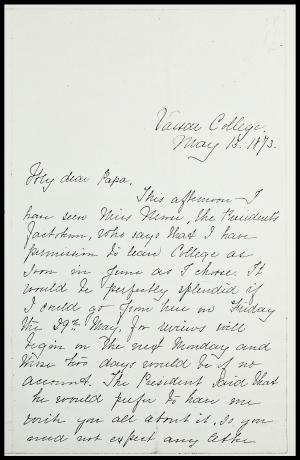 Vassar College.
May 13. 1873.
My dear Papa.
This afternoon I
have seen Miss the President's
who says that I have
permission to leave College as
soon in June as I choose. It
would be perfectly splendid if
I could go from here on Friday
the 29th May, for reviews will
begin on the next Monday and
those two days would be of no
account. The President said that
he would prefer to have me
write you all about it, so you
need not expect any other